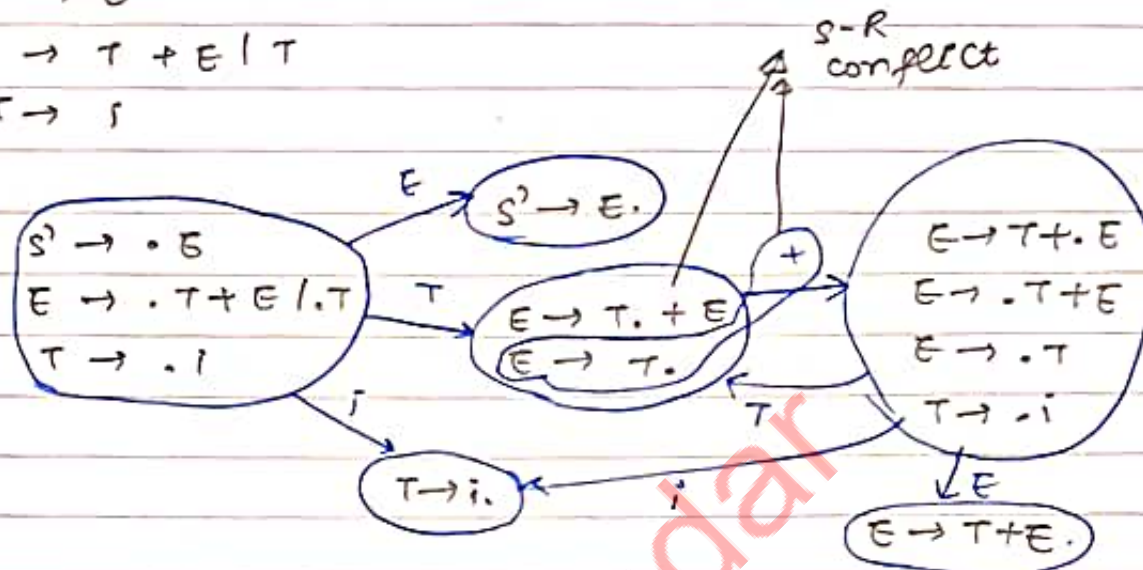 → T + E / T
T → i
S-R
conflict
E
S' → E.
S' → . E
E → . T + E / . T
T → . i
T
E → T. + E
E → T.
+
E → T + . E
E → . T + E
E → . T
T → . i
T
i
T → i.
i
E
E → T + E.
dar